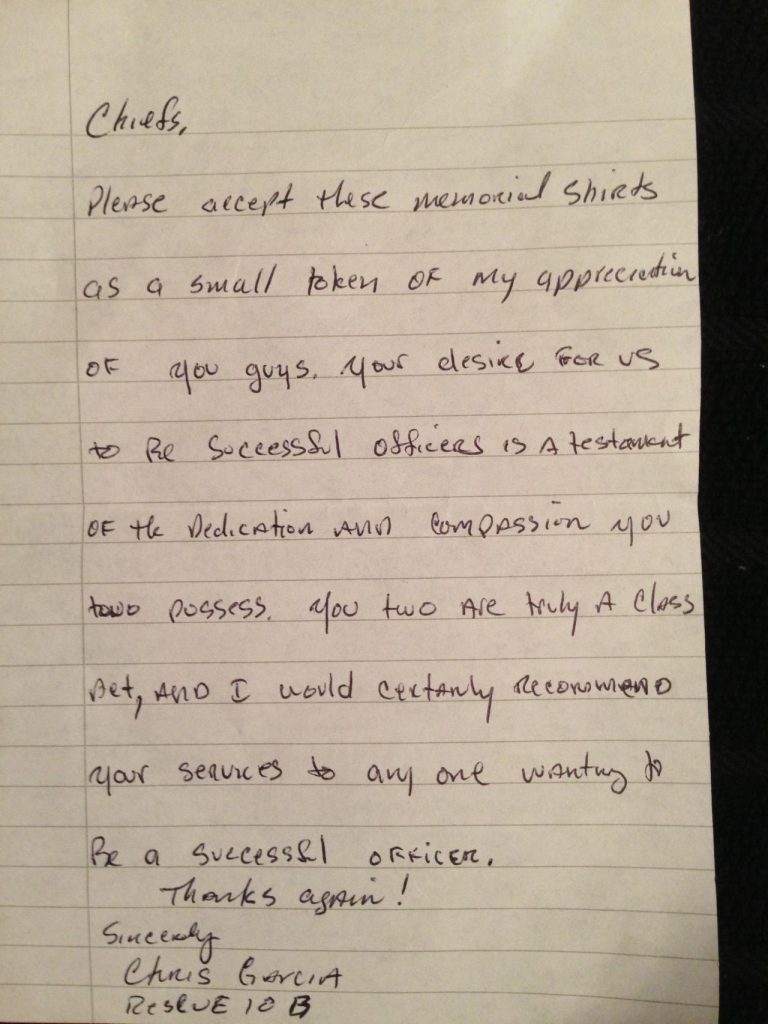 Chiefs,
Please accept these memorial shirts
as a small token of my appreciation
of you guys. Your desire for us
to be successful officers is a testament
of the dedication and compassion you
two possess. You two are truly a class
act, and I would certanly recommend
your services to any one wanting to
be a successful officer.
Thanks again!
Sincerely
Chris Garcia
Rescue 10 B